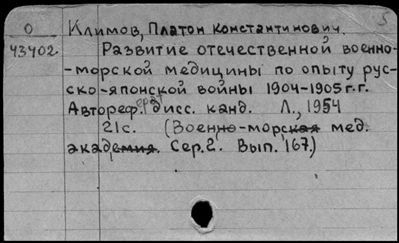 5
О Климов, Платон Константинович.
43402 Развитие отечественной военно-
-морской медицины по опыту рус-
ско-японской войны 1904-1905 г.г.
Автореф. дисс. канд. Л., 1954
21с. (Военно-морская мед.
академия. Сер.2. Вып. 167.)